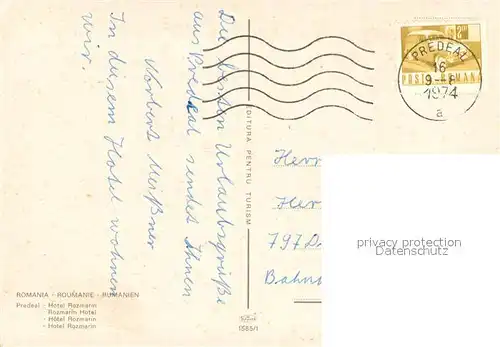 Die besten Urlaubsgrüße
aus Predeal sendet Ihnen
Norbert Meißner
In diesem Hotel wohnen
wir.
ROMANIA - ROUMANIE - RUMÄNIEN
Predeal - Hotel Rozmarin
- Rozmarin Hotel
- Hôtel Rozmarin
- Hotel Rozmarin
EDITURA PENTRU TURISM
1585/1
PREDEAL
16
9--8
1974
a
POSTA ROMANA
Herr
Her
797 D
Bahn
privacy protection
Datenschutz